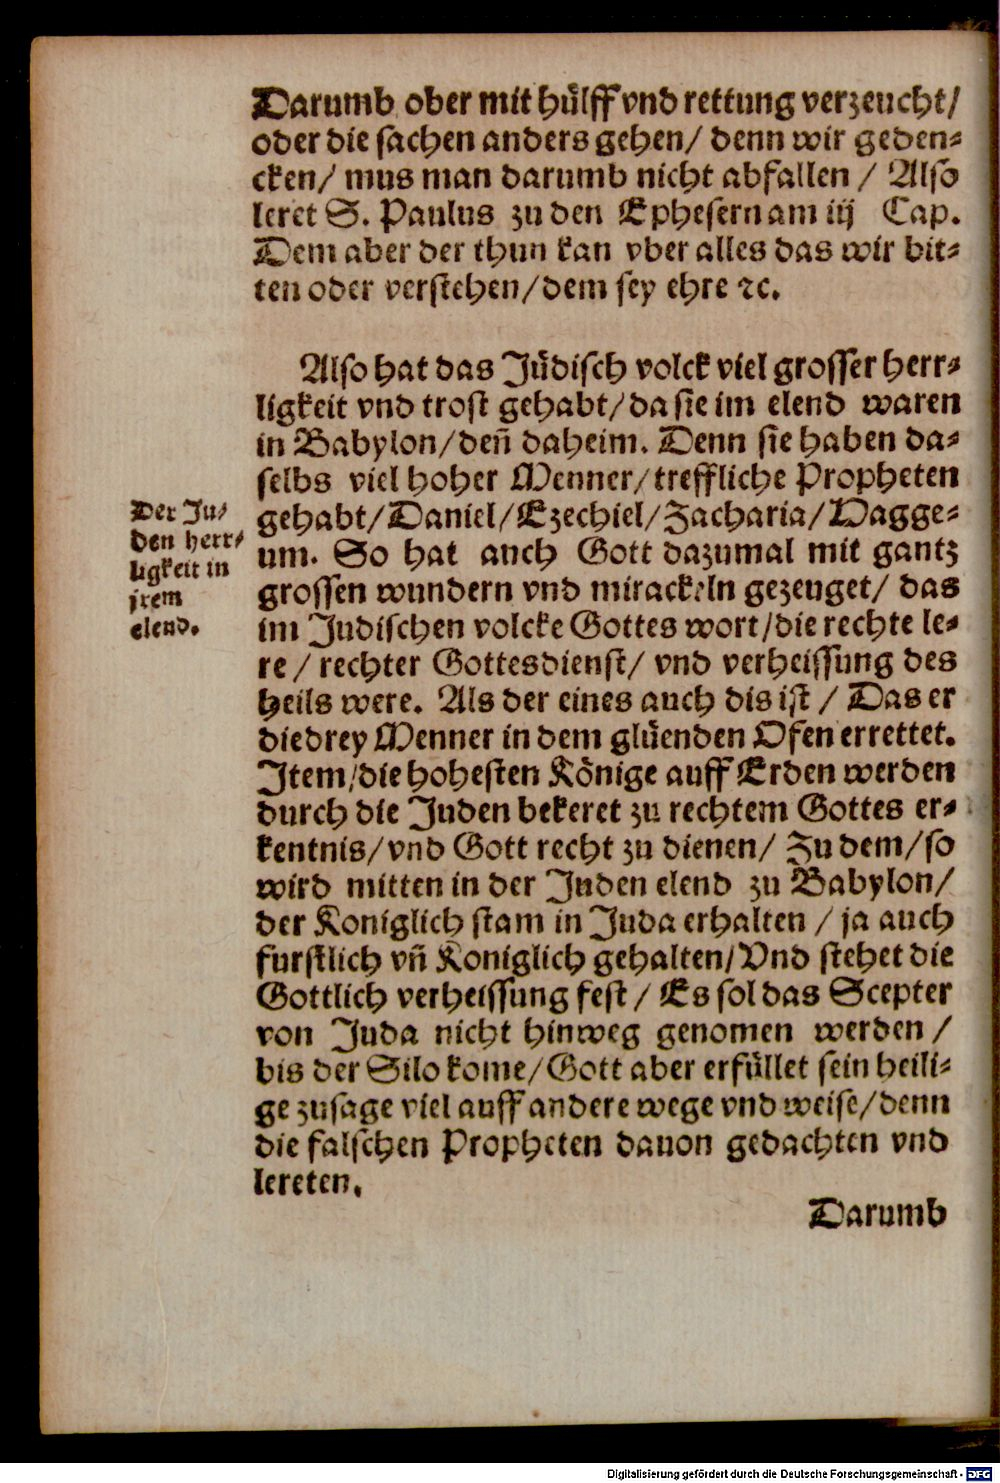 Darumb ober mit hülff vnd rettung verzeucht/
oder die sachen anders gehen/ denn wir geden-
cken/ mus man darumb nicht abfallen / Also
leret S. Paulus zu den Ephesern am iij Cap.
Dem aber der thun kan vber alles das wir bit-
ten oder verstehen/dem sey ehre ꝛc.
Also hat das Jüdisch volck viel grosser herr-
ligkeit vnd trost gehabt/da sie im elend waren
in Babylon/deñ daheim. Denn sie haben da-
selbs viel hoher Menner/treffliche Propheten
gehabt/Daniel/Ezechiel/Zacharia/Hagge-
um. So hat auch Gott dazumal mit gantz
grossen wundern vnd mirackeln gezeuget/ das
im Judischen volcke Gottes wort/die rechte le-
re / rechter Gottesdienst/ vnd verheissung des
heils were. Als der eines auch dis ist / Das er
die drey Menner in dem glüenden Ofen errettet.
Jtem/die hohesten Könige auff Erden werden
durch die Juden bekeret zu rechtem Gottes er-
kentnis/vnd Gott recht zu dienen/ Zu dem/so
wird mitten in der Juden elend zu Babylon/
der Koniglich stam in Juda erhalten / ja auch
furstlich vñ Koniglich gehalten/Vnd stehet die
Gottlich verheissung fest / Es sol das Scepter
von Juda nicht hinweg genomen werden /
bis der Silo kome/Gott aber erfüllet sein heili-
ge zusage viel auff andere wege vnd weise/denn
die falschen Propheten dauon gedachten vnd
lereten.
Darumb
Der Ju-
den herr-
ligkeit in
jrem
elend.
Digitalisierung gefördert durch die Deutsche Forschungsgemeinschaft - DFG